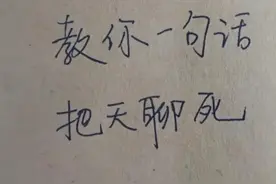 教你一句话
把天聊死